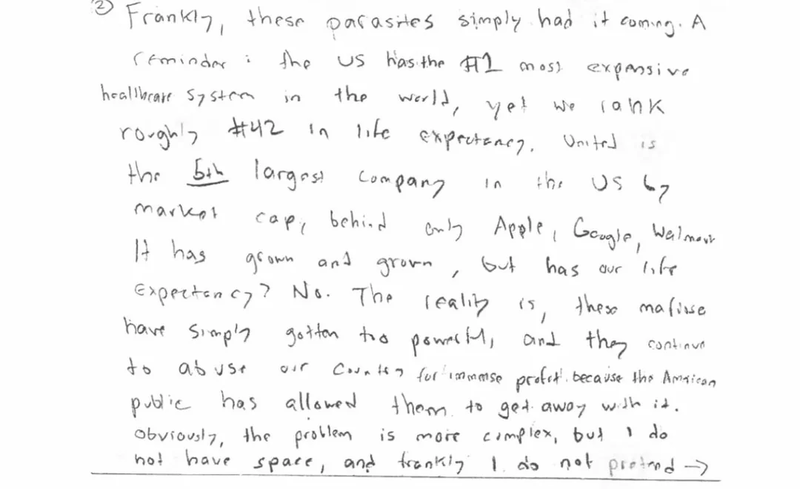 ② Frankly, these parasites simply had it coming. A
reminder: the US has the #1 most expensive
healthcare system in the world, yet we rank
roughly #42 in life expectancy. United is
the 5th largest company in the US by
market cap, behind only Apple, Google, Walmart.
It has grown and grown, but has our life
expectancy? No. The reality is, these mafiose
have simply gotten too powerful, and they continue
to abuse our country for immense profit because the American
public has allowed them to get away with it.
Obviously, the problem is more complex, but I do
not have space, and frankly I do not pretend →